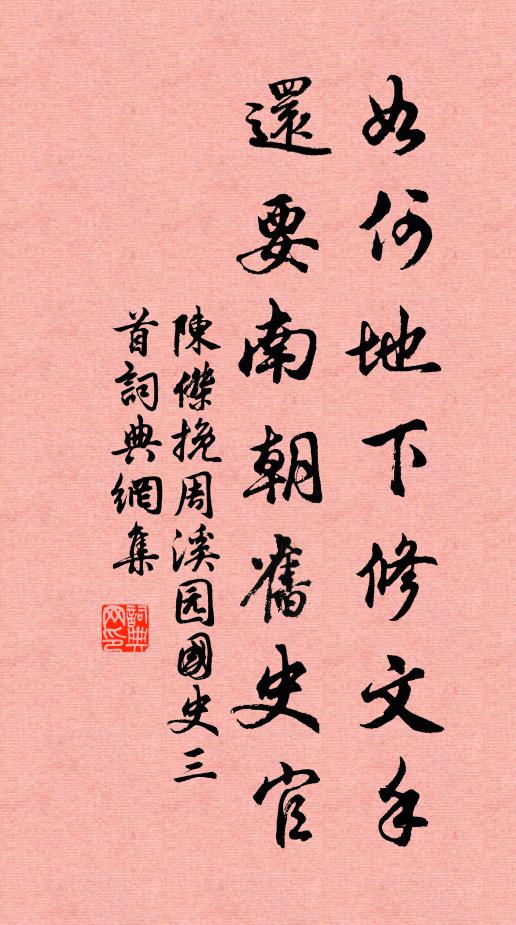 如何地下修文手
還要南朝舊史官
陳傑挽周溪园國史三
首詞典網集
詞典网印